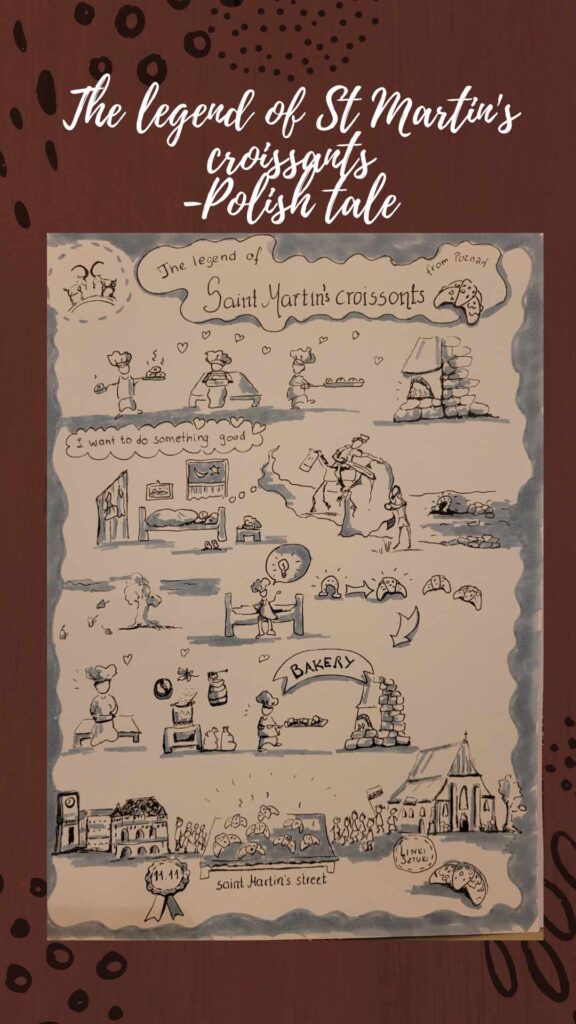 The legend of St Martin's
croissants
-Polish tale
The legend of
from Poznań
Saint Martin's croissonts
I want to do something good
BAKERY
LINKI
SZTUKI
11.11
saint Martin's street